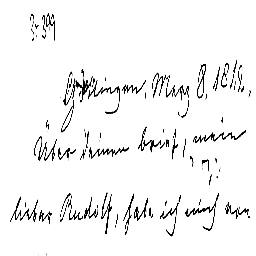 Göttingen, März 8, 1818,
Über deinen brief, mein
lieber Rudolf, habe ich mich von